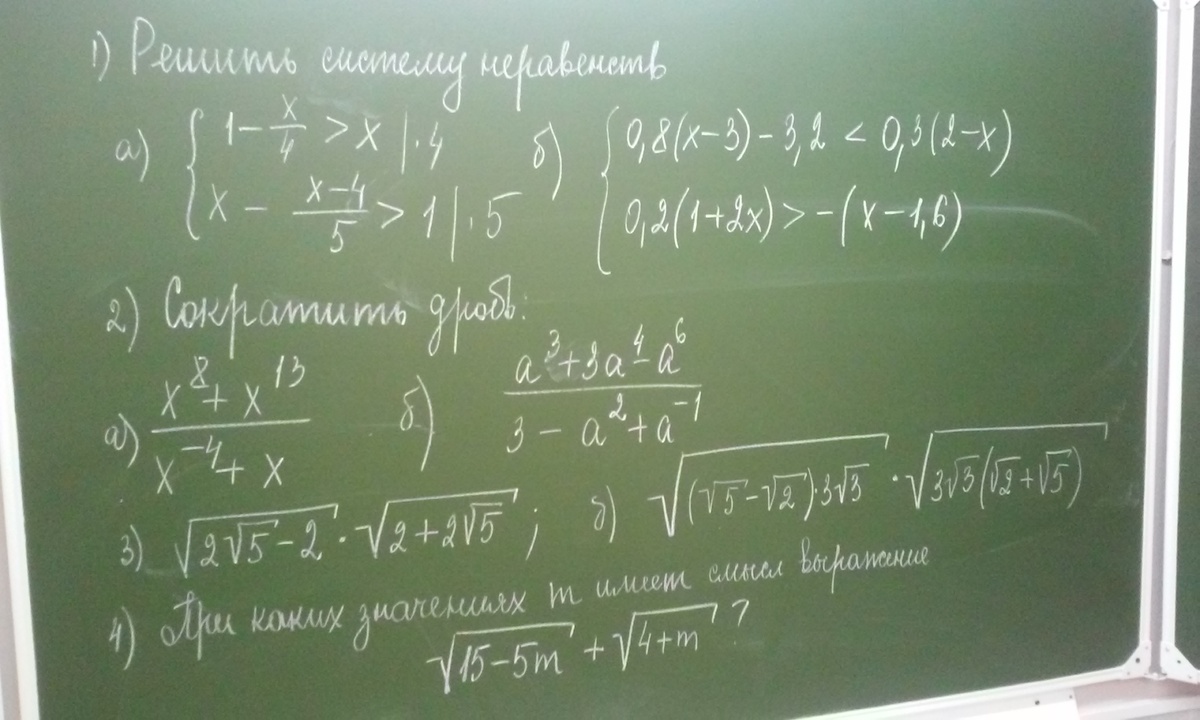 1) Решить систему неравенств
а) { 1 - x/4 > x | · 4   б) { 0,8(x-3) - 3,2 < 0,3(2-x)
x - (x-4)/5 > 1 | · 5   0,2(1+2x) > -(x-1,6)
2) Сократить дробь:
а) (x^8 + x^13)/(x^-4 + x)   б) (a^3 + 3a^4 - a^6)/(3 - a^2 + a^-1)
3) √(2√5 - 2) · √(2 + 2√5) ;   б) √((√5 - √2) 3√3) · √(3√3(√2 + √5))
4) При каких значениях m имеет смысл выражение
√(15 - 5m) + √(4 + m) ?